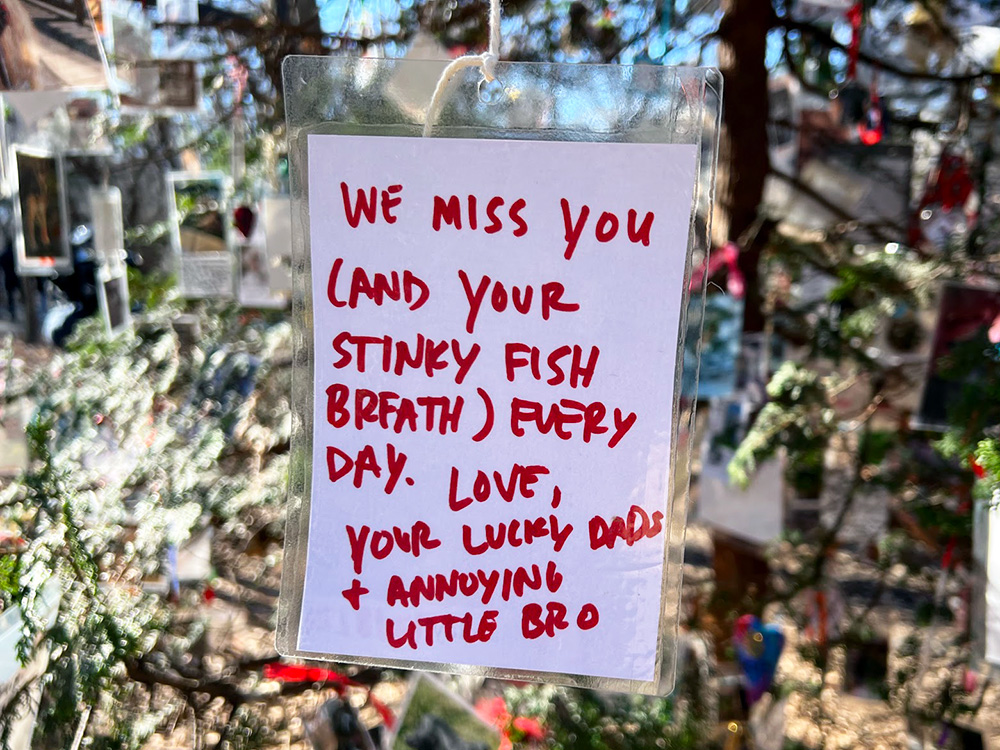 WE MISS YOU
(AND YOUR
STINKY FISH
BREATH) EVERY
DAY. LOVE,
YOUR LUCKY DADS
+ ANNOYING
LITTLE BRO